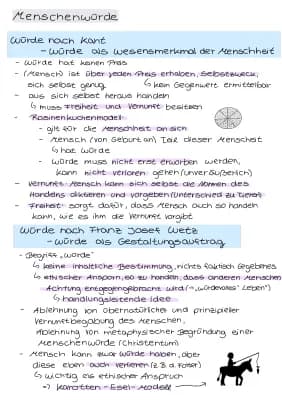 Menschenwürde
Würde nach Kant
- Würde als Wesensmerkmal der Menschheit
- Würde hat keinen Preis
- (Mensch) ist über jeden Preis erhaben, Selbstzweck,
sich selbst genug ↳ kein Gegenwert ermittelbar
- aus sich selbst heraus handeln
↳ muss Freiheit und Vernunft besitzen
- Rosinenkuchenmodell:
- gilt für die Menschheit an sich
- Mensch (von Geburt an) Teil dieser Menschheit
↳ hat Würde
- Würde muss nicht erst erworben werden,
kann nicht verloren gehen (unveräußerlich)
- Vernunft: Mensch kann sich selbst die Normen des
Handelns diktieren und vorgeben (Unterschied zu Tieren)
- Freiheit: sorgt dafür, dass Mensch auch so handeln
kann, wie es ihm die Vernunft vorgibt
Würde nach Franz Josef Wetz
- Würde als Gestaltungsauftrag
- Begriff „Würde"
↳ keine inhaltliche Bestimmung, nichts faktisch Gegebenes
↳ ethischer Ansporn, so zu handeln, dass anderen Menschen
Achtung entgegengebracht wird (→ „würdevolles" Leben")
↳ handlungsleitende Idee
- Ablehnung von übernatürlicher und prinzipieller
Vernunftbegabung des Menschen,
Ablehnung von metaphysischer Begründung einer
Menschenwürde (Christentum)
- Mensch kann zwar Würde haben, aber
diese eben auch verlieren (z.B. d. Folter)
↳ wichtig als ethischer Anspruch
=> Karotten-Esel-Modell